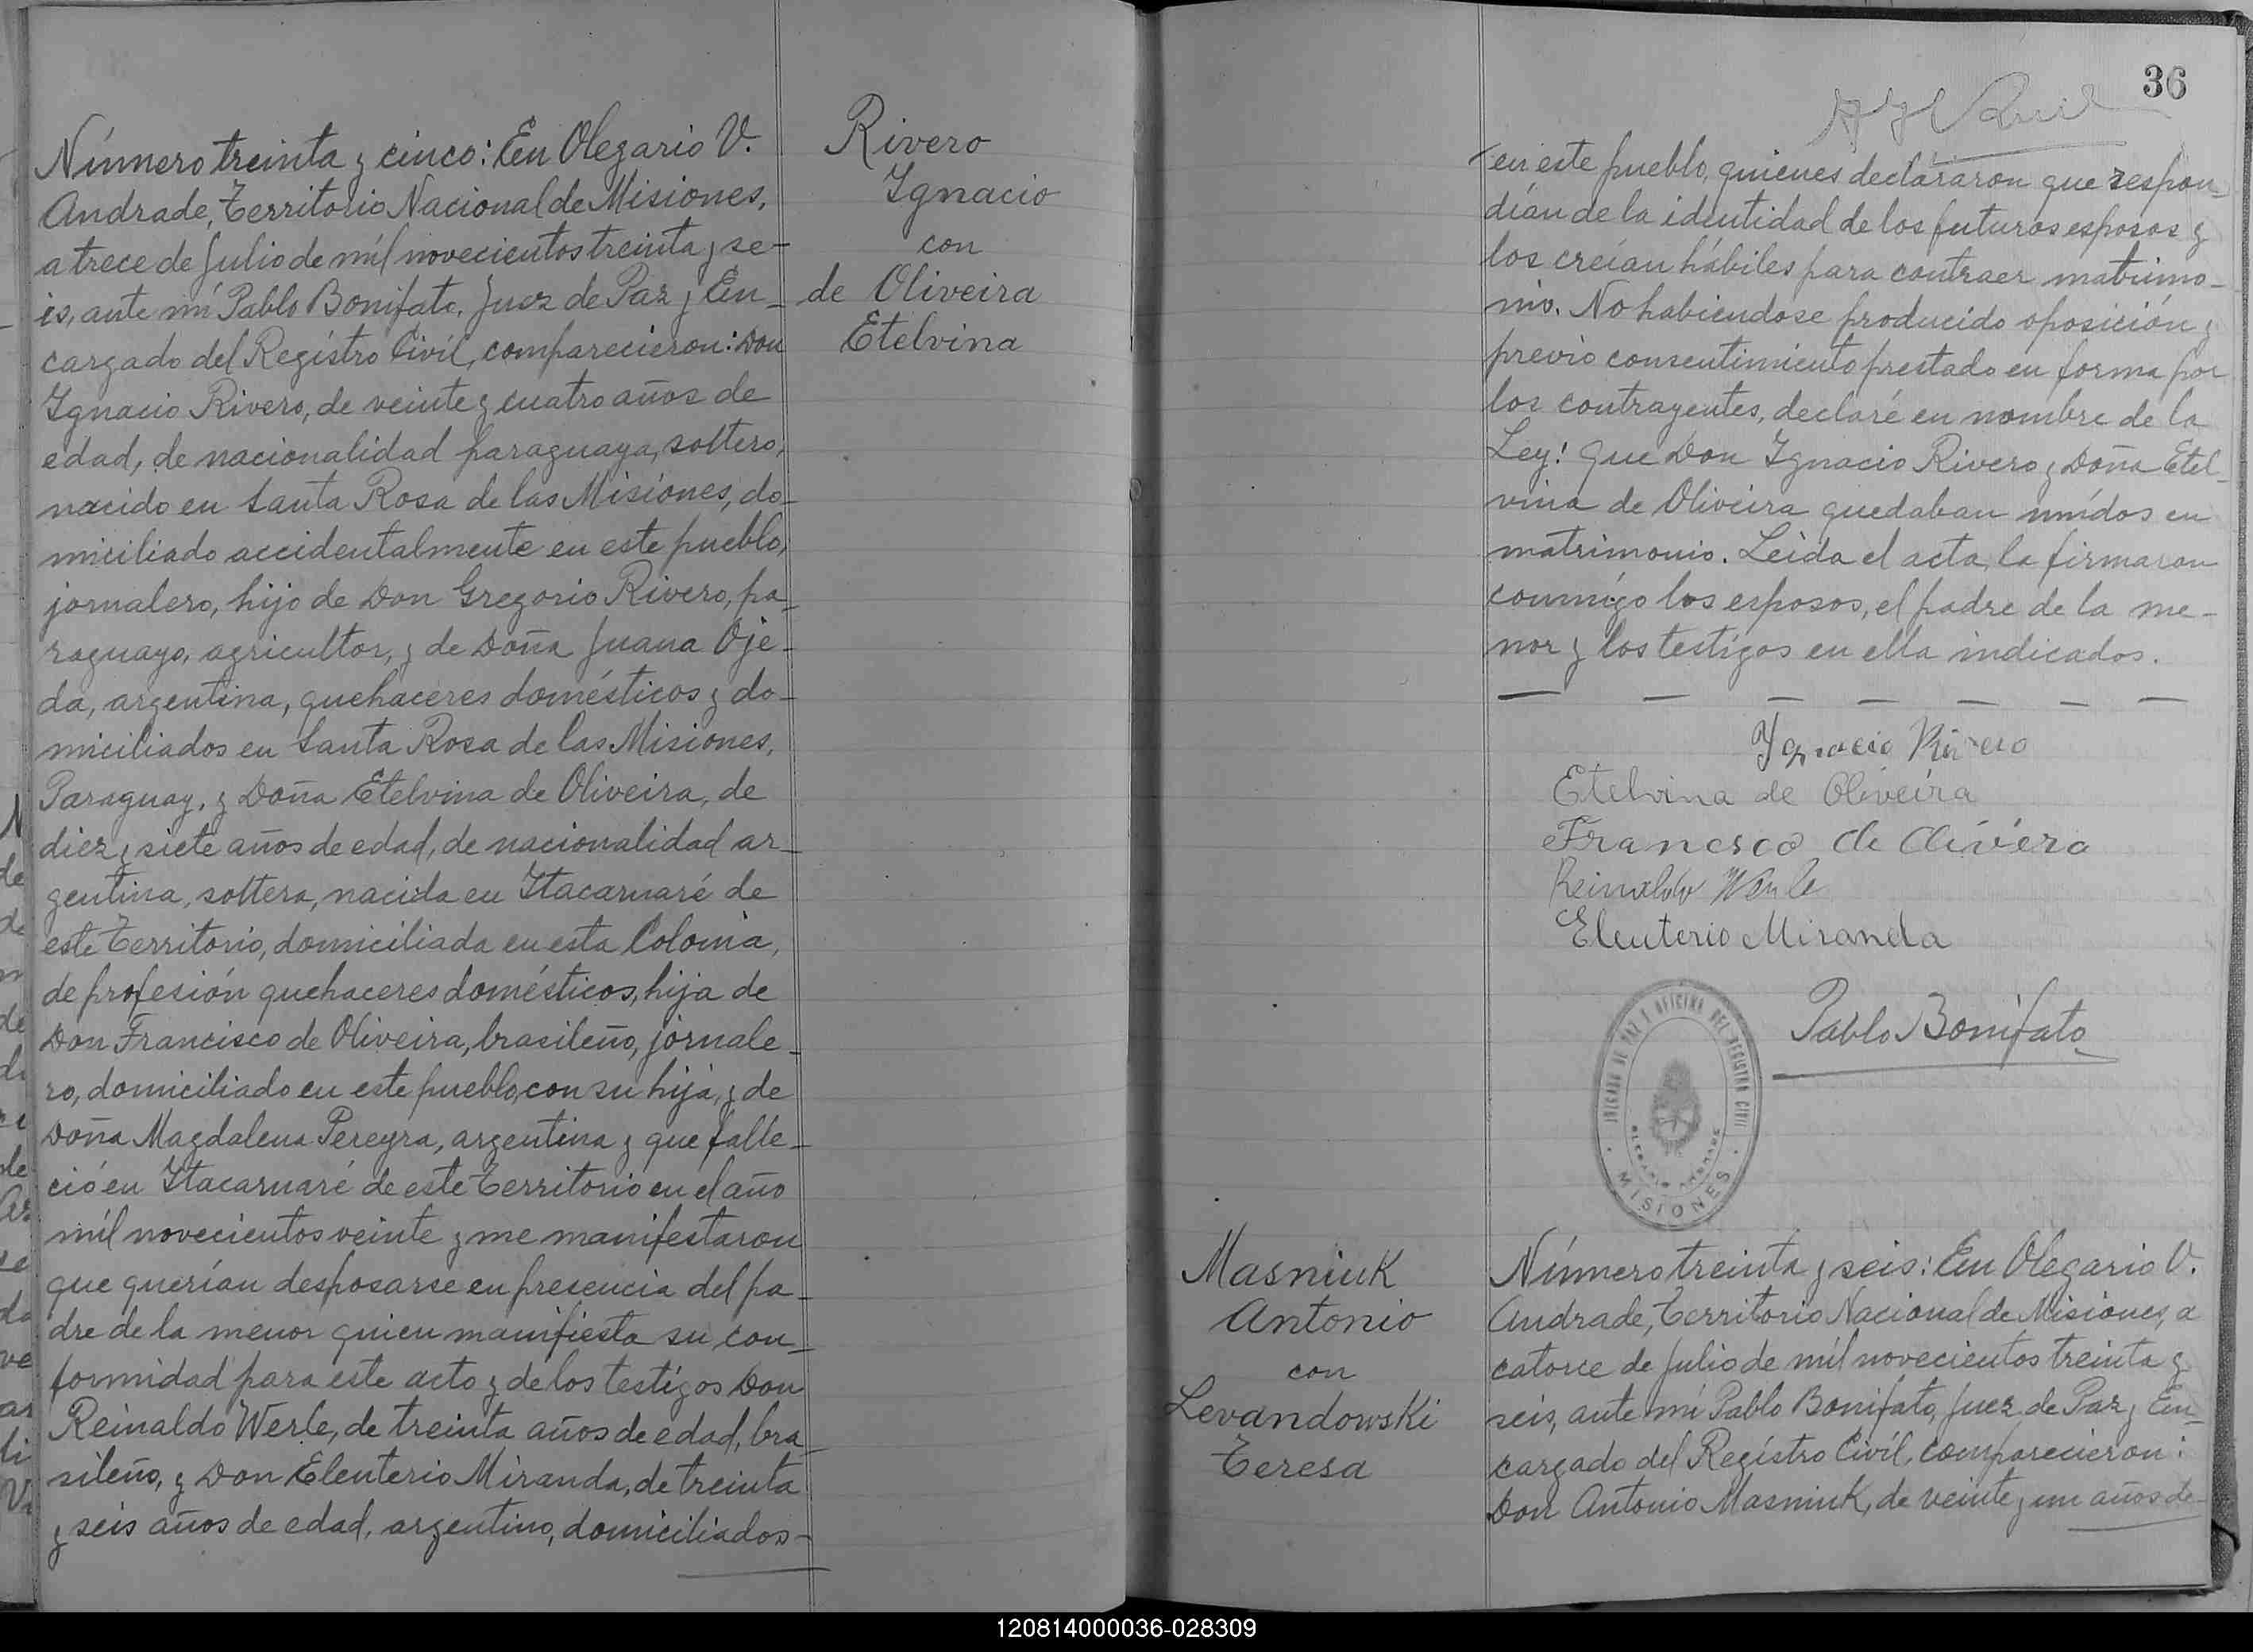 Número treinta y cinco: En Olegario V.
Andrade, Territorio Nacional de Misiones,
a trece de Julio de mil novecientos treinta y se-
is, ante mí Pablo Bonifato, Juez de Paz y En-
cargado del Registro Civil, comparecieron: Don
Ignacio Rivero, de veinte y cuatro años de
edad, de nacionalidad paraguaya, soltero,
nacido en Santa Rosa de las Misiones, do-
miciliado accidentalmente en este pueblo,
jornalero, hijo de Don Gregorio Rivero, pa-
raguayo, agricultor, y de Doña Juana Oje-
da, argentina, quehaceres domésticos y do-
miciliados en Santa Rosa de las Misiones,
Paraguay, y Doña Etelvina de Oliveira, de
diez y siete años de edad, de nacionalidad ar-
gentina, soltera, nacida en Itacaruaré de
este Territorio, domiciliada en esta Colonia,
de profesión quehaceres domésticos, hija de
Don Francisco de Oliveira, brasileño, jornale-
ro, domiciliado en este pueblo, con su hija, y de
Doña Magdalena Pereyra, argentina y que falle-
ció en Itacaruaré de este Territorio en el año
mil novecientos veinte y me manifestaron
que querían desposarse en presencia del pa-
dre de la menor quien manifiesta su con-
formidad para este acto y de los testigos Don
Reinaldo Werle, de treinta años de edad, bra-
sileño, y Don Eleuterio Miranda, de treinta
y seis años de edad, argentino, domiciliados-
Rivero
Ignacio
con
de Oliveira
Etelvina
36
en este pueblo, quienes declararon que respon-
dían de la identidad de los futuros esposos y
los creían hábiles para contraer matrimo-
nio. No habiendose producido oposición y
previo consentimiento prestado en forma por
los contrayentes, declaré en nombre de la
Ley! Que Don Ignacio Rivero y Doña Etel-
vina de Oliveira quedaban unidos en
matrimonio. Leida el acta, la firmaron
conmigo los esposos, el padre de la me-
nor y los testigos en ella indicados.
Ignacio Rivero
Etelvina de Oliveira
Francsco de Olivera
Reinaldo Werle
Eleuterio Miranda
Pablo Bonifato
JUZGADO DE PAZ Y OFICINA DEL REGISTRO CIVIL
OLEGARIO ANDRADE
MISIONES
Masniuk
Antonio
con
Levandowski
Teresa
Número treinta y seis: En Olegario V.
Andrade, Territorio Nacional de Misiones, a
catorce de Julio de mil novecientos treinta y
seis, ante mí Pablo Bonifato, Juez de Paz y En-
cargado del Registro Civil, comparecieron:
Don Antonio Masniuk, de veinte y un años de-
120814000036-028309